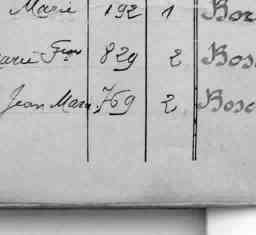 Marie 192 1 Bor
arie Fçon 829 2 Bos
Jean Marie 769 2 Bosc